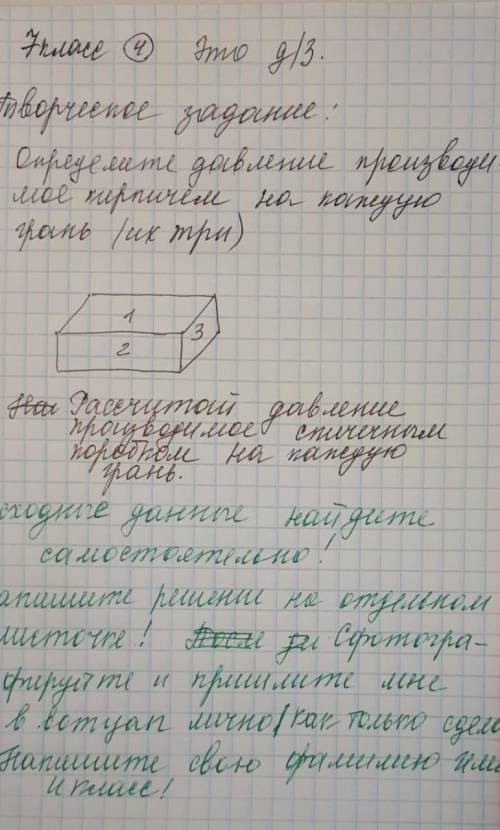 7 класс (4) Это д/з.
Творческое задание:
Определите давление производи
мое кирпичём на каждую
грань (их три)
1
2
3
Рассчитай давление
производимое спичечным
коробком на каждую
грань.
сходные данные найдите
самостоятельно!
апишите решение на отдельном
листочке! Сфотогра-
фируйте и пришлите мне
в вотцап лично/как только сдела
Напишите свою фамилию имя
и класс!